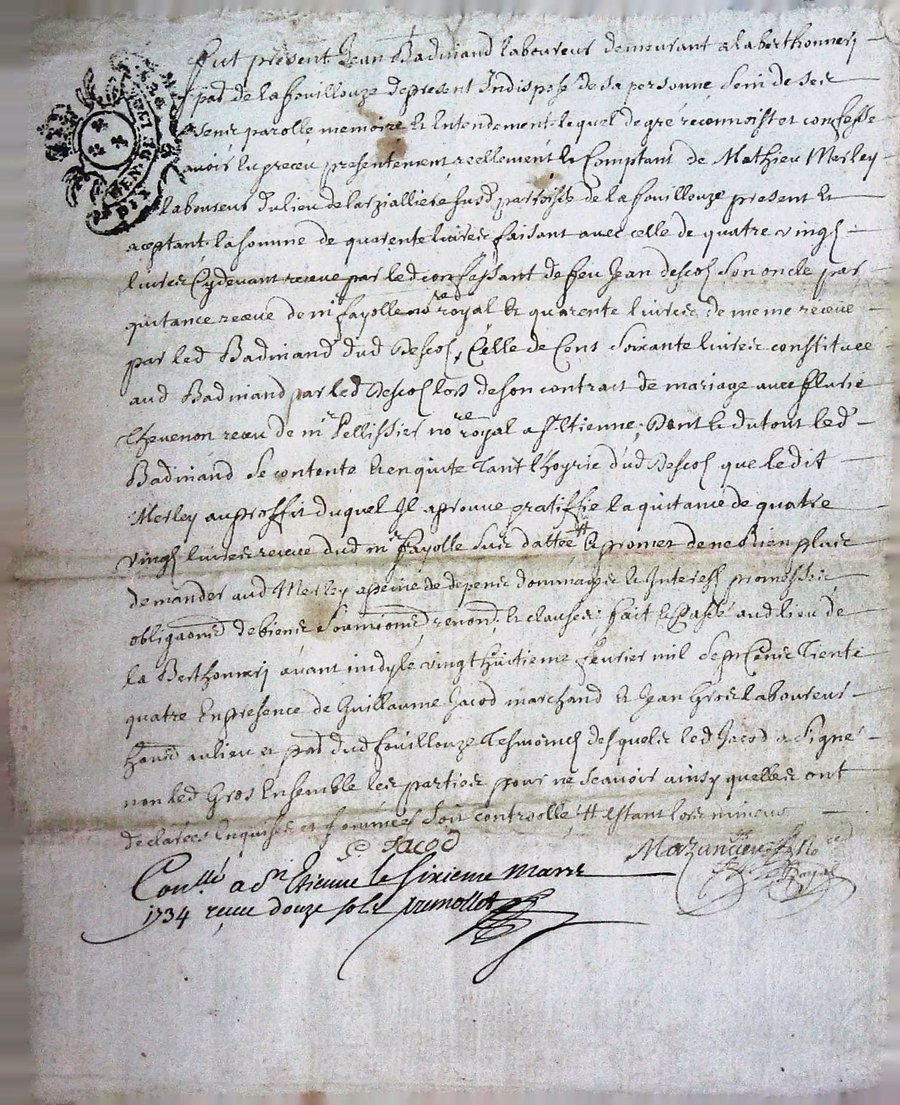 GEN DE
DIX
Fut présent Jean Badinand laboureur demeurant a la berthonnerj
par de la fouillouze de present Indispose de sa personne sein de ses
sens parolle mémoire Et Entendement lequel de gré reconnoist et confesse
avoir reçeu presentement reellement Et Comptant de Mathieu Merley
laboureur du lieu de parroisse de la fouillouze present Et
aceptant la somme de quarente livres faisant avec celle de quatre vingt
livres Cydevant receue par led confessant de feu Jean descos son oncle par
quitance receue de mr fayolle nore royal Et quarente livres de meme receue
par led Badinand dud Descos, Celle de Cent soixante livres constituee
aud Badinand par led Descos lors de son contract de mariage avec flurie
Thevenon receu de mr Pellissier nore royal a st Etienne, Dont Et du tout led
Badinand se contente Et en quite Tant l'hoyrie dud Descos que ledit
Merley au proffit duquel Il aprouve gratiffie la quitance de quatre
vingt livres receue dud mr fayolle suis dattée # Et promet de ne Rien plus
demander aud Merley a peine de depens dommages Et Interest promesses
obligaons de biens soumions renonon Et clauses, fait Et Passé aud lieu de
la Berthonnerj avant midy le vingt huitieme février mil sept Cens Trente
quatre En presence de Guillaume Jacod marchand Et Jean Gros laboureur
dud fouillouze Tesmoins desquels led Jacod a signé
non led Gros Ensemble les parties pour ne scavoir ainsy quelles ont
declarées Enquises et sommées soit controollé # estant lors mineur
G Jacod
Conllé a St Etienne le sixieme mars
1734 reçeu douze sols